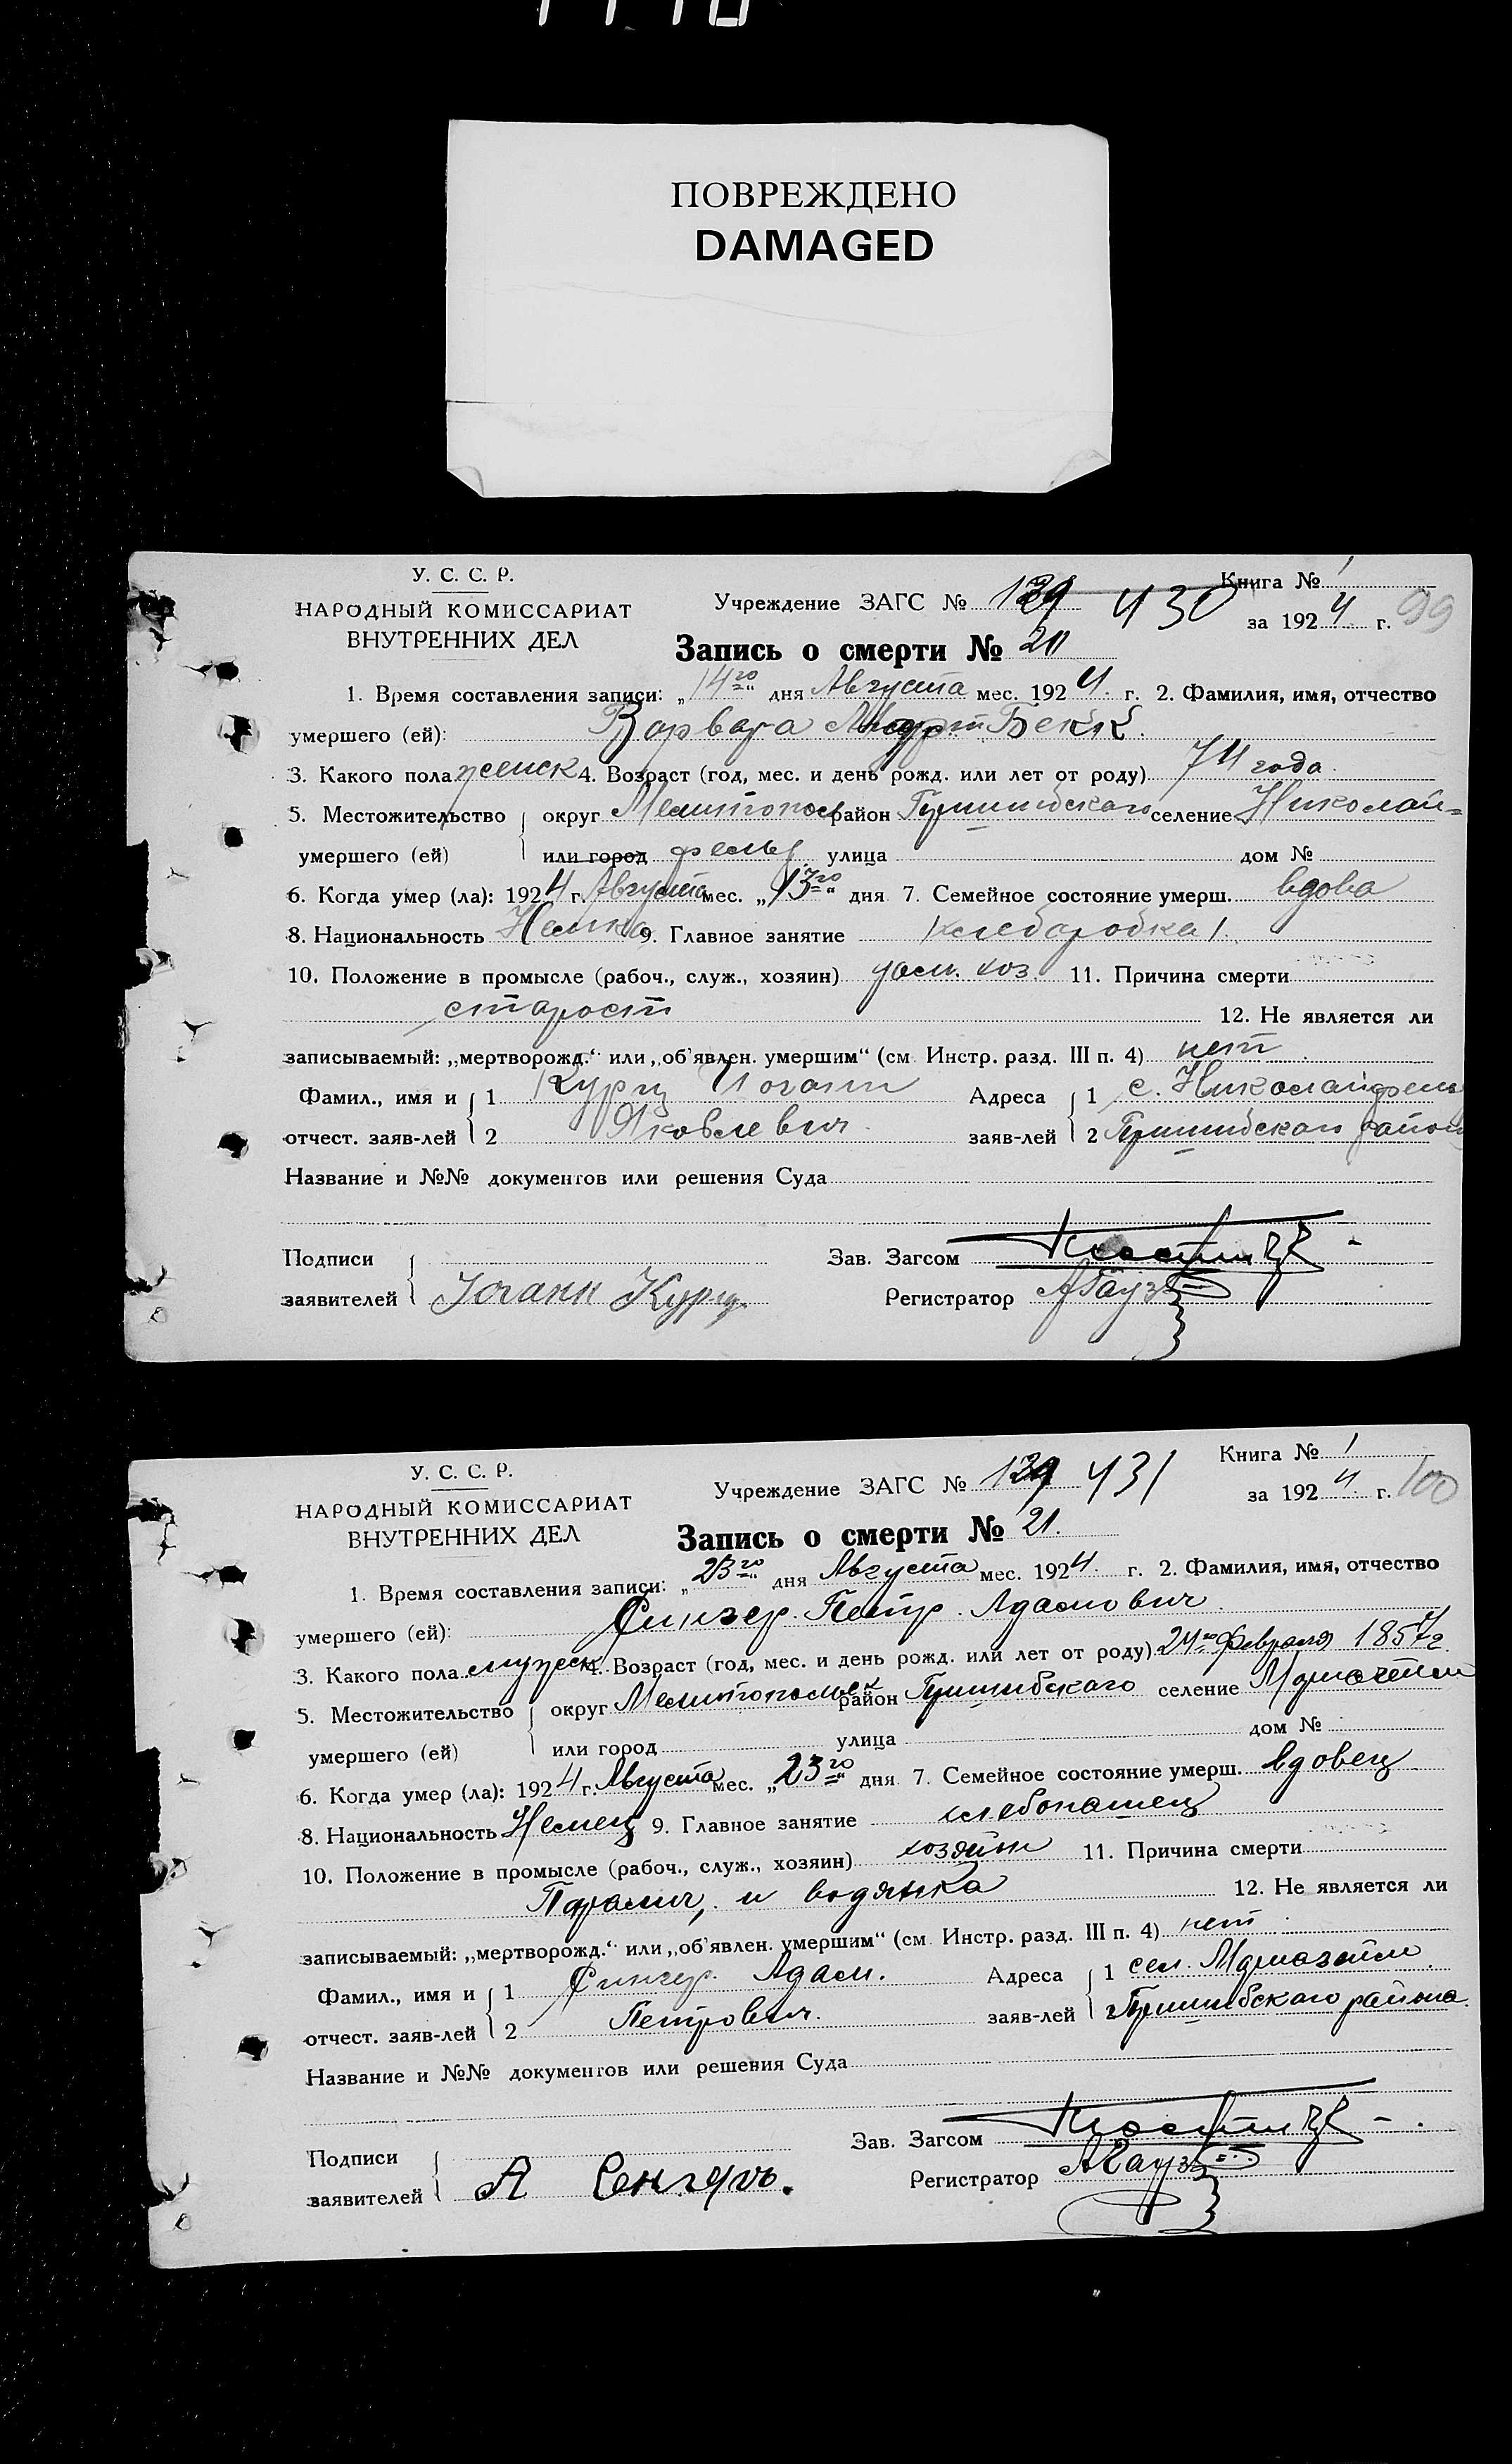 ПОВРЕЖДЕНО
DAMAGED
У. С. С. Р.
НАРОДНЫЙ КОМИССАРИАТ
ВНУТРЕННИХ ДЕЛ
Учреждение ЗАГС № 430
Книга № 1
за 1924 г. 99
Запись о смерти №
1. Время составления записи: „14го“ дня Августа мес. 1924 г. 2. Фамилия, имя, отчество
умершего (ей): Варвара Бекк.
3. Какого пола женск 4. Возраст (год, мес. и день рожд. или лет от роду) 74 года
5. Местожительство округ Мелитополь район Пришибского селение Николай=
умершего (ей) или город фельд улица дом №
6. Когда умер (ла): 1924 г. Августа мес. „13го“ дня 7. Семейное состояние умерш. вдова
8. Национальность Немка 9. Главное занятие хлеборобка
10. Положение в промысле (рабоч., служ., хозяин) дом. хоз. 11. Причина смерти
старост
12. Не является ли
записываемый: „мертворожд.“ или „об'явлен. умершим“ (см. Инстр. разд. III п. 4) нет
Фамил., имя и 1 Курц Иоганн Адреса 1 с. Николайфельд
отчест. заяв-лей 2 Яковлевич заяв-лей 2 Пришибского района
Название и №№ документов или решения Суда
Подписи Зав. Загсом
заявителей Иоганн Курц Регистратор
У. С. С. Р.
НАРОДНЫЙ КОМИССАРИАТ
ВНУТРЕННИХ ДЕЛ
Учреждение ЗАГС № 431
Книга № 1
за 1924 г. 100
Запись о смерти № 21.
1. Время составления записи: „23го“ дня Августа мес. 1924 г. 2. Фамилия, имя, отчество
умершего (ей): Сингер Петр Адамович
3. Какого пола мужск 4. Возраст (год, мес. и день рожд. или лет от роду) 24го февраля 1857 г.
5. Местожительство округ Мелитопольск район Пришибского селение
умершего (ей) или город улица дом №
6. Когда умер (ла): 1924 г. Августа мес. „23го“ дня 7. Семейное состояние умерш. вдовец
8. Национальность Немец 9. Главное занятие хлебопашец
10. Положение в промысле (рабоч., служ., хозяин) хозяин 11. Причина смерти
Паралич, и водянка
12. Не является ли
записываемый: „мертворожд.“ или „об'явлен. умершим“ (см. Инстр. разд. III п. 4) нет
Фамил., имя и 1 Сингер Адам. Адреса 1 сел.
отчест. заяв-лей 2 Петрович. заяв-лей 2 Пришибского района.
Название и №№ документов или решения Суда
Подписи Зав. Загсом
заявителей А Регистратор